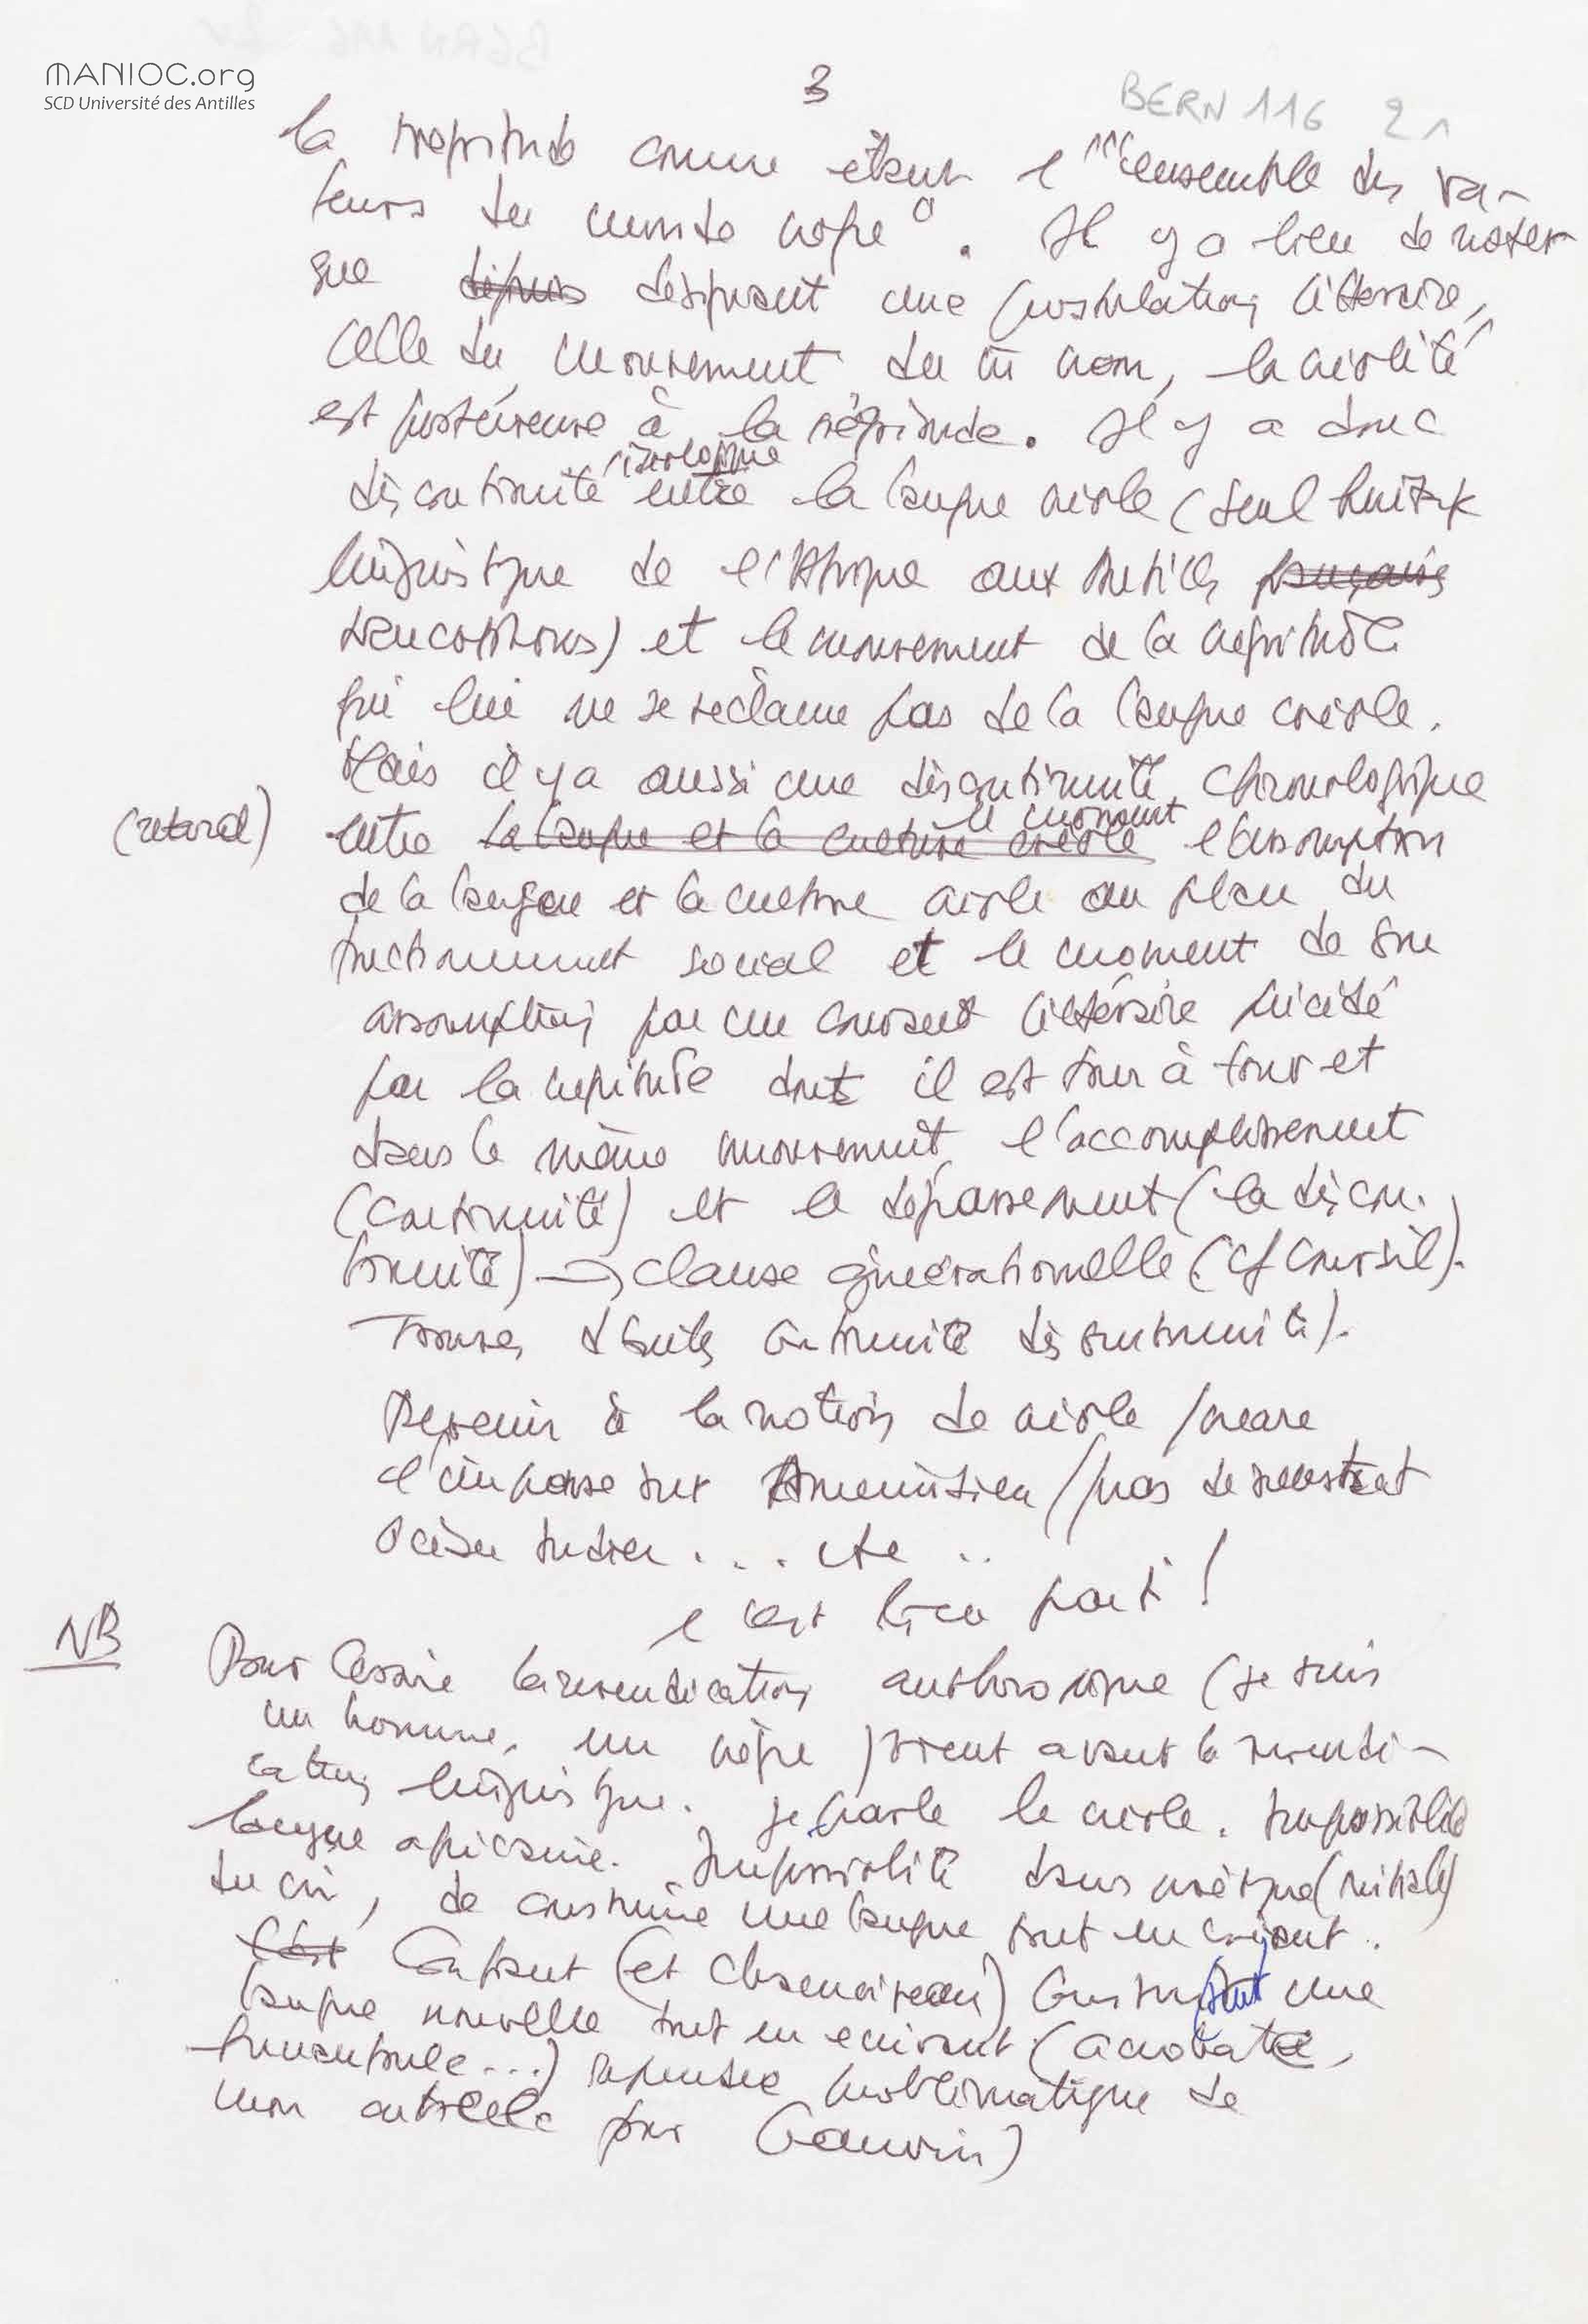 MANIOC.org
SCD Université des Antilles
3
BERN 116 21
la négritude comme étant l'"ensemble des va-
leurs du monde nègre". Il y a lieu de noter
que depuis désignant une postulation littéraire,
celle du mouvement du même nom, la créolité
est postérieure à la négritude. Il y a donc
discontinuité idéologique entre la langue créole (seul
linguistique de l'Afrique aux Antilles français
francophones) et le mouvement de la négritude
qui lui ne se réclame pas de la langue créole.
Mais il y a aussi une discontinuité chronologique
(retard) entre la langue et la culture créole le moment l'assomption
de la langue et la culture créole au plan du
fonctionnement social et le moment de son
assomption par un courant littéraire suscité
par la négritude dont il est tour à tour et
dans le même mouvement l'accomplissement
(continuité) et le dépassement (la discon-
tinuité) → clause générationnelle (cf Coursil).
continuité discontinuité).
Revenir à la notion de créole
l'impasse sur Amérindien / pas de substrat
Océan Indien ... etc ..
c'est bien parti !
NB Pour Césaire la revendication anthropologique (je suis
un homme, un nègre) vient avant la revendi-
cation linguistique. Je parle le créole. Impossible
langue africaine. Impossibilité dans
du cri, de construire une langue tout en criant.
C'est Confiant (et Chamoiseau) construisent une
langue nouvelle tout en écrivant (acrobate,
funambule...) repensée problématique de
mon article sur Gauvin)